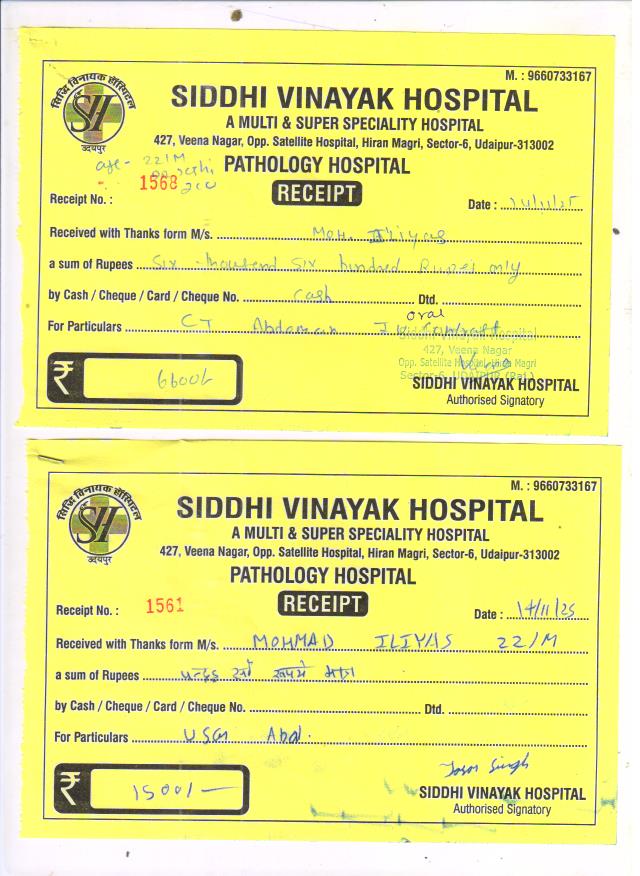 M. : 9660733167
सिद्धि विनायक हॉस्पिटल
SH
उदयपुर
SIDDHI VINAYAK HOSPITAL
A MULTI & SUPER SPECIALITY HOSPITAL
427, Veena Nagar, Opp. Satellite Hospital, Hiran Magri, Sector-6, Udaipur-313002
age - 22/M
PATHOLOGY HOSPITAL
Receipt No. : 1568
RECEIPT
Date : 14/11/25
Received with Thanks form M/s. Moh. Iliyas
a sum of Rupees Six thousand Six hundred Rupei only
by Cash / Cheque / Card / Cheque No. cash Dtd.
For Particulars CT Abdaman oral
Siddhi Vinayak Hospital
427, Veena Nagar
Opp. Satellite Hospital, Hiran Magri
Sector-6, UDAIPUR (Raj.)
₹ 6600/-
SIDDHI VINAYAK HOSPITAL
Authorised Signatory
M. : 9660733167
सिद्धि विनायक हॉस्पिटल
SH
उदयपुर
SIDDHI VINAYAK HOSPITAL
A MULTI & SUPER SPECIALITY HOSPITAL
427, Veena Nagar, Opp. Satellite Hospital, Hiran Magri, Sector-6, Udaipur-313002
PATHOLOGY HOSPITAL
Receipt No. : 1561
RECEIPT
Date : 14/11/25
Received with Thanks form M/s. MOHMAD ILIYAS 22/M
a sum of Rupees पन्द्रह सौ रूपये मात्र
by Cash / Cheque / Card / Cheque No. Dtd.
For Particulars USG Abd.
₹ 1500/-
SIDDHI VINAYAK HOSPITAL
Authorised Signatory